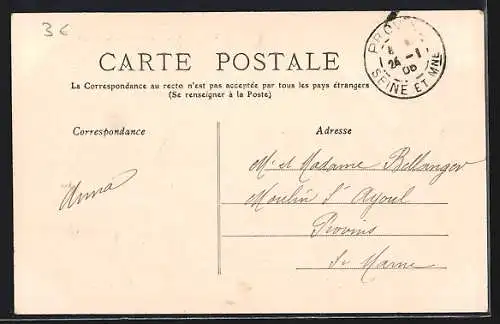 3€
CARTE POSTALE
La Correspondance au recto n'est pas acceptée par tous les pays étrangers
(Se renseigner à la Poste)
PROVINS
26 - 1
06
SEINE ET MNE
Correspondance
Adresse
Mr et Madame Bellanger
Moulin St Ayoul
Anna
Provins
S. Marne